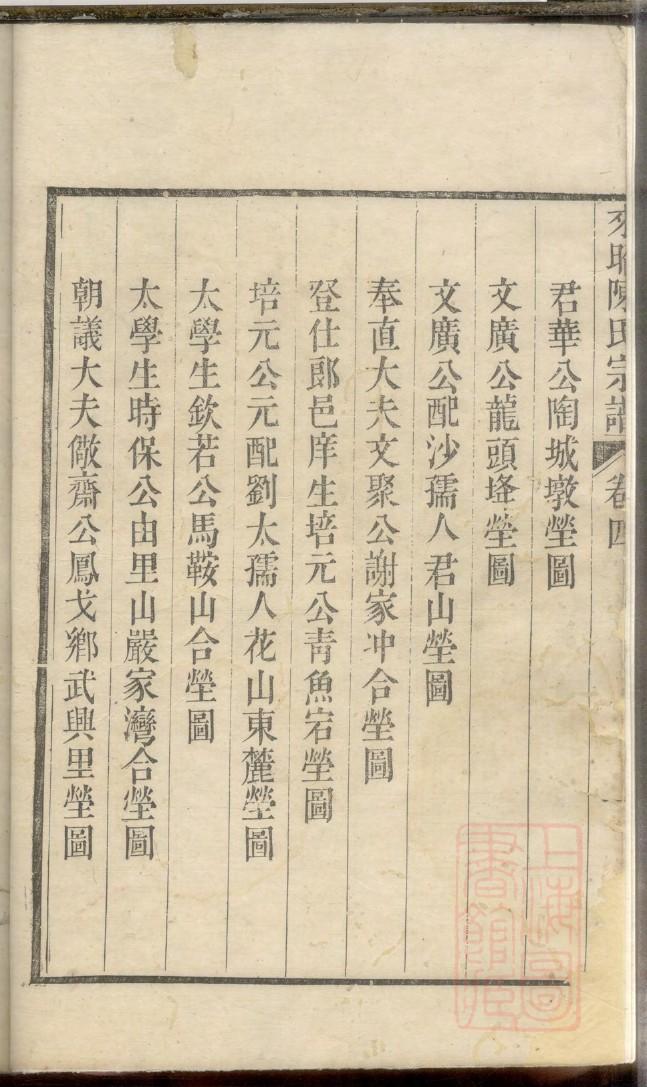 陳氏宗譜 卷四
君華公陶城墩塋圖
文廣公龍頭塋圖
文廣公配沙孺人君山塋圖
奉直大夫文聚公謝家冲合塋圖
登仕郎邑庠生培元公青魚宕塋圖
培元公元配劉太孺人花山東麓塋圖
太學生欽若公馬鞍山合塋圖
太學生時保公由里山嚴家灣合塋圖
朝議大夫儆齋公鳳戈鄉武興里塋圖
上海圖書館藏